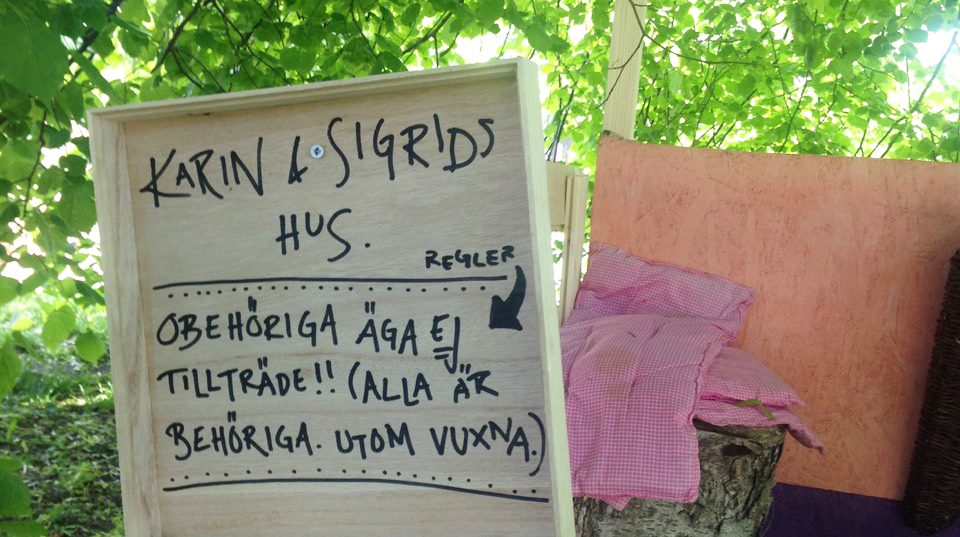 KARIN & SIGRIDS
HUS.
REGLER
OBEHÖRIGA ÄGA EJ
TILLTRÄDE!! (ALLA ÄR
BEHÖRIGA. UTOM VUXNA.)